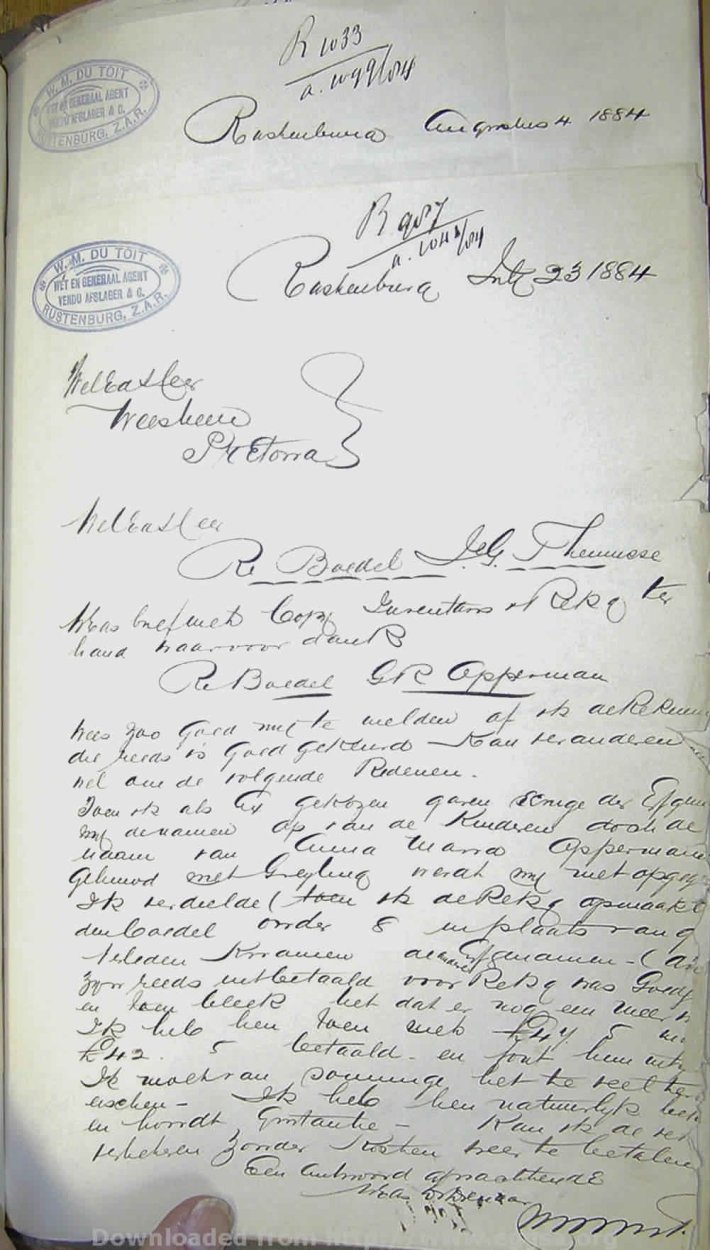 R 1033
W. M. DU TOIT
WET EN GENERAAL AGENT
VENDU AFSLAGER & C.
RUSTENBURG, Z.A.R.
Rustenburg Augustus 4 1884
R 987
W. M. DU TOIT
WET EN GENERAAL AGENT
VENDU AFSLAGER & C.
RUSTENBURG, Z.A.R.
Rustenburg July 23 1884
WelEdHeer
Weesheer
Pretoria
WelEdHeer
Re Boedel J. G. Theunisse
Uwas brief met Copy Inventaris & Rekg ter
hand waarvoor dank
Re Boedel GR Opperman
wees zoo goed my te melden of ik de Rekening
die reeds is goed gekeurd kan veranderen
wel om de volgende Redenen.
Toen ik als Ex gekozen gaven eenige der Erfgen
my de namen op van de Kinderen doch de
naam van Anna Maria Opperman
gehuwd met Greyling werdt my niet opge
Ik verdeelde (toen ik de Rekg opmaakte
den boedel onder 8 in plaats van 9
Erfgenamen - (die
zyn reeds uitbetaald voor Rekg was Goedg
en toen bleek het dat er nog een meer is
Ik heb hen toen £47 5
£42. 5 betaald - en fout
Ik moet van sommige het te veel ter
eischen - Ik heb hen natuurlyk
en wordt - Kan ik de
zonder Kosten weer te betalen
Een Antwoord afwachtende
Uwas Dw Dienaar
Downloaded from http://www.eggsa.org